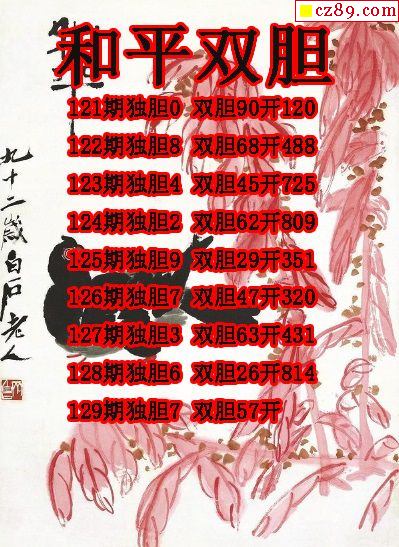 cz89.com
和平双胆
121期独胆0 双胆90开120
122期独胆8 双胆68开488
123期独胆4 双胆45开725
124期独胆2 双胆62开809
125期独胆9 双胆29开351
126期独胆7 双胆47开320
127期独胆3 双胆63开431
128期独胆6 双胆26开814
129期独胆7 双胆57开
九十二岁白石老人